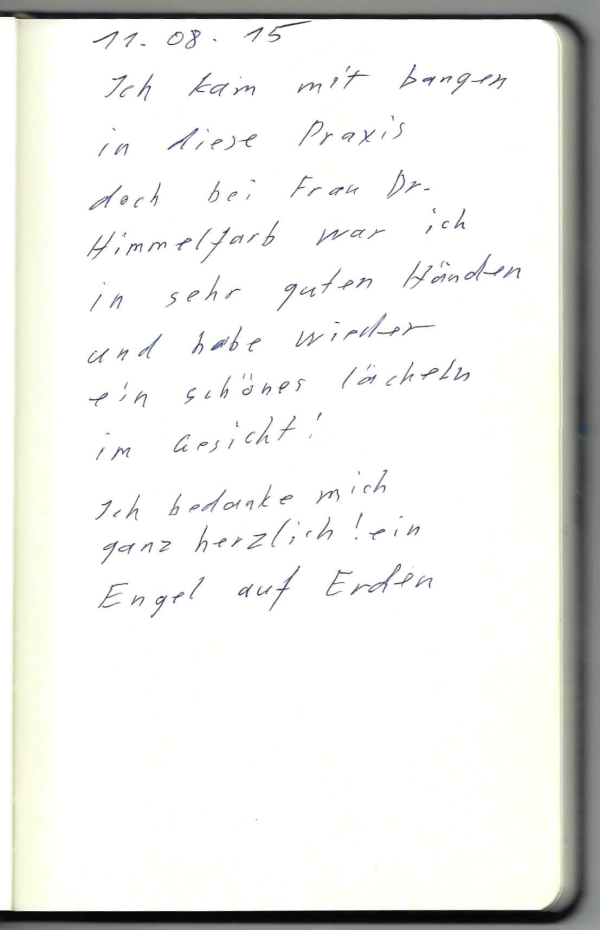 11. 08. 15
Ich kam mit bangen
in diese Praxis
doch bei Frau Dr.
Himmelfarb war ich
in sehr guten Händen
und habe wieder
ein schönes lächeln
im Gesicht!
Ich bedanke mich
ganz herzlich! ein
Engel auf Erden